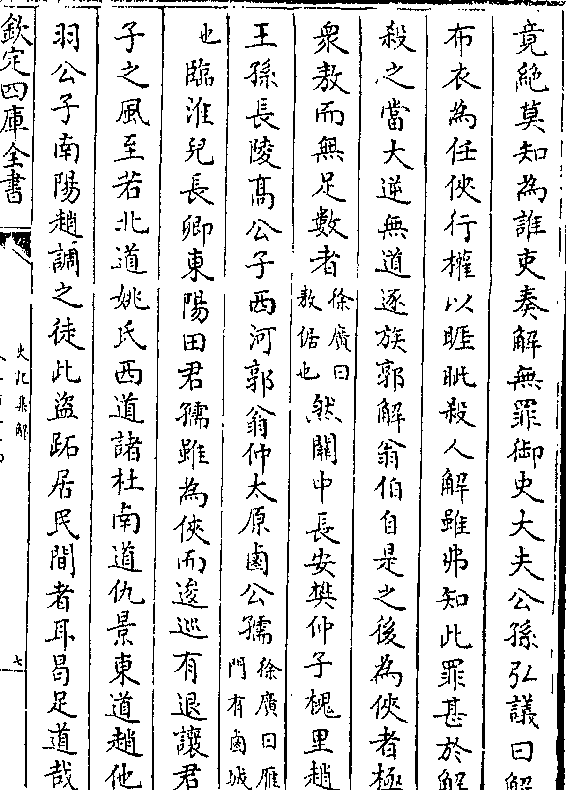 竟絶莫知為誰吏奏解無罪御史大夫公孫弘議曰解
布衣為任俠行權以睚眦殺人解雖弗知此罪甚於解
殺之當大逆無道遂族郭解翁伯自是之後為俠者極
衆敖而無足數者徐廣曰敖倨也然闗中長安樊仲子槐里趙
王孫長陵髙公子西河郭翁仲太原鹵公孺徐廣曰雁門有鹵城
也臨淮兒長卿東陽田君孺雖為俠而逡巡有退讓君
子之風至若北道姚氏西道諸杜南道仇景東道趙他
羽公子南陽趙調之徒此盜跖居民間者耳曷足道哉
欽定四庫全書
史記集解
七